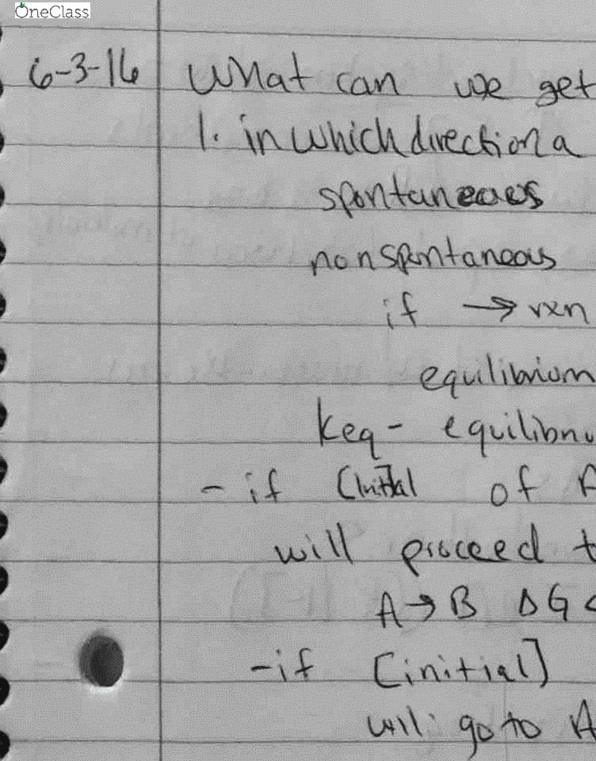 OneClass
6-3-16 What can we get
1. in which direction a
spontaneous
nonspontaneous
if → rxn
equilibrium
keq - equilibriu
- if [Initial of A
will proceed t
A → B ΔG <
- if [initial]
will go to A